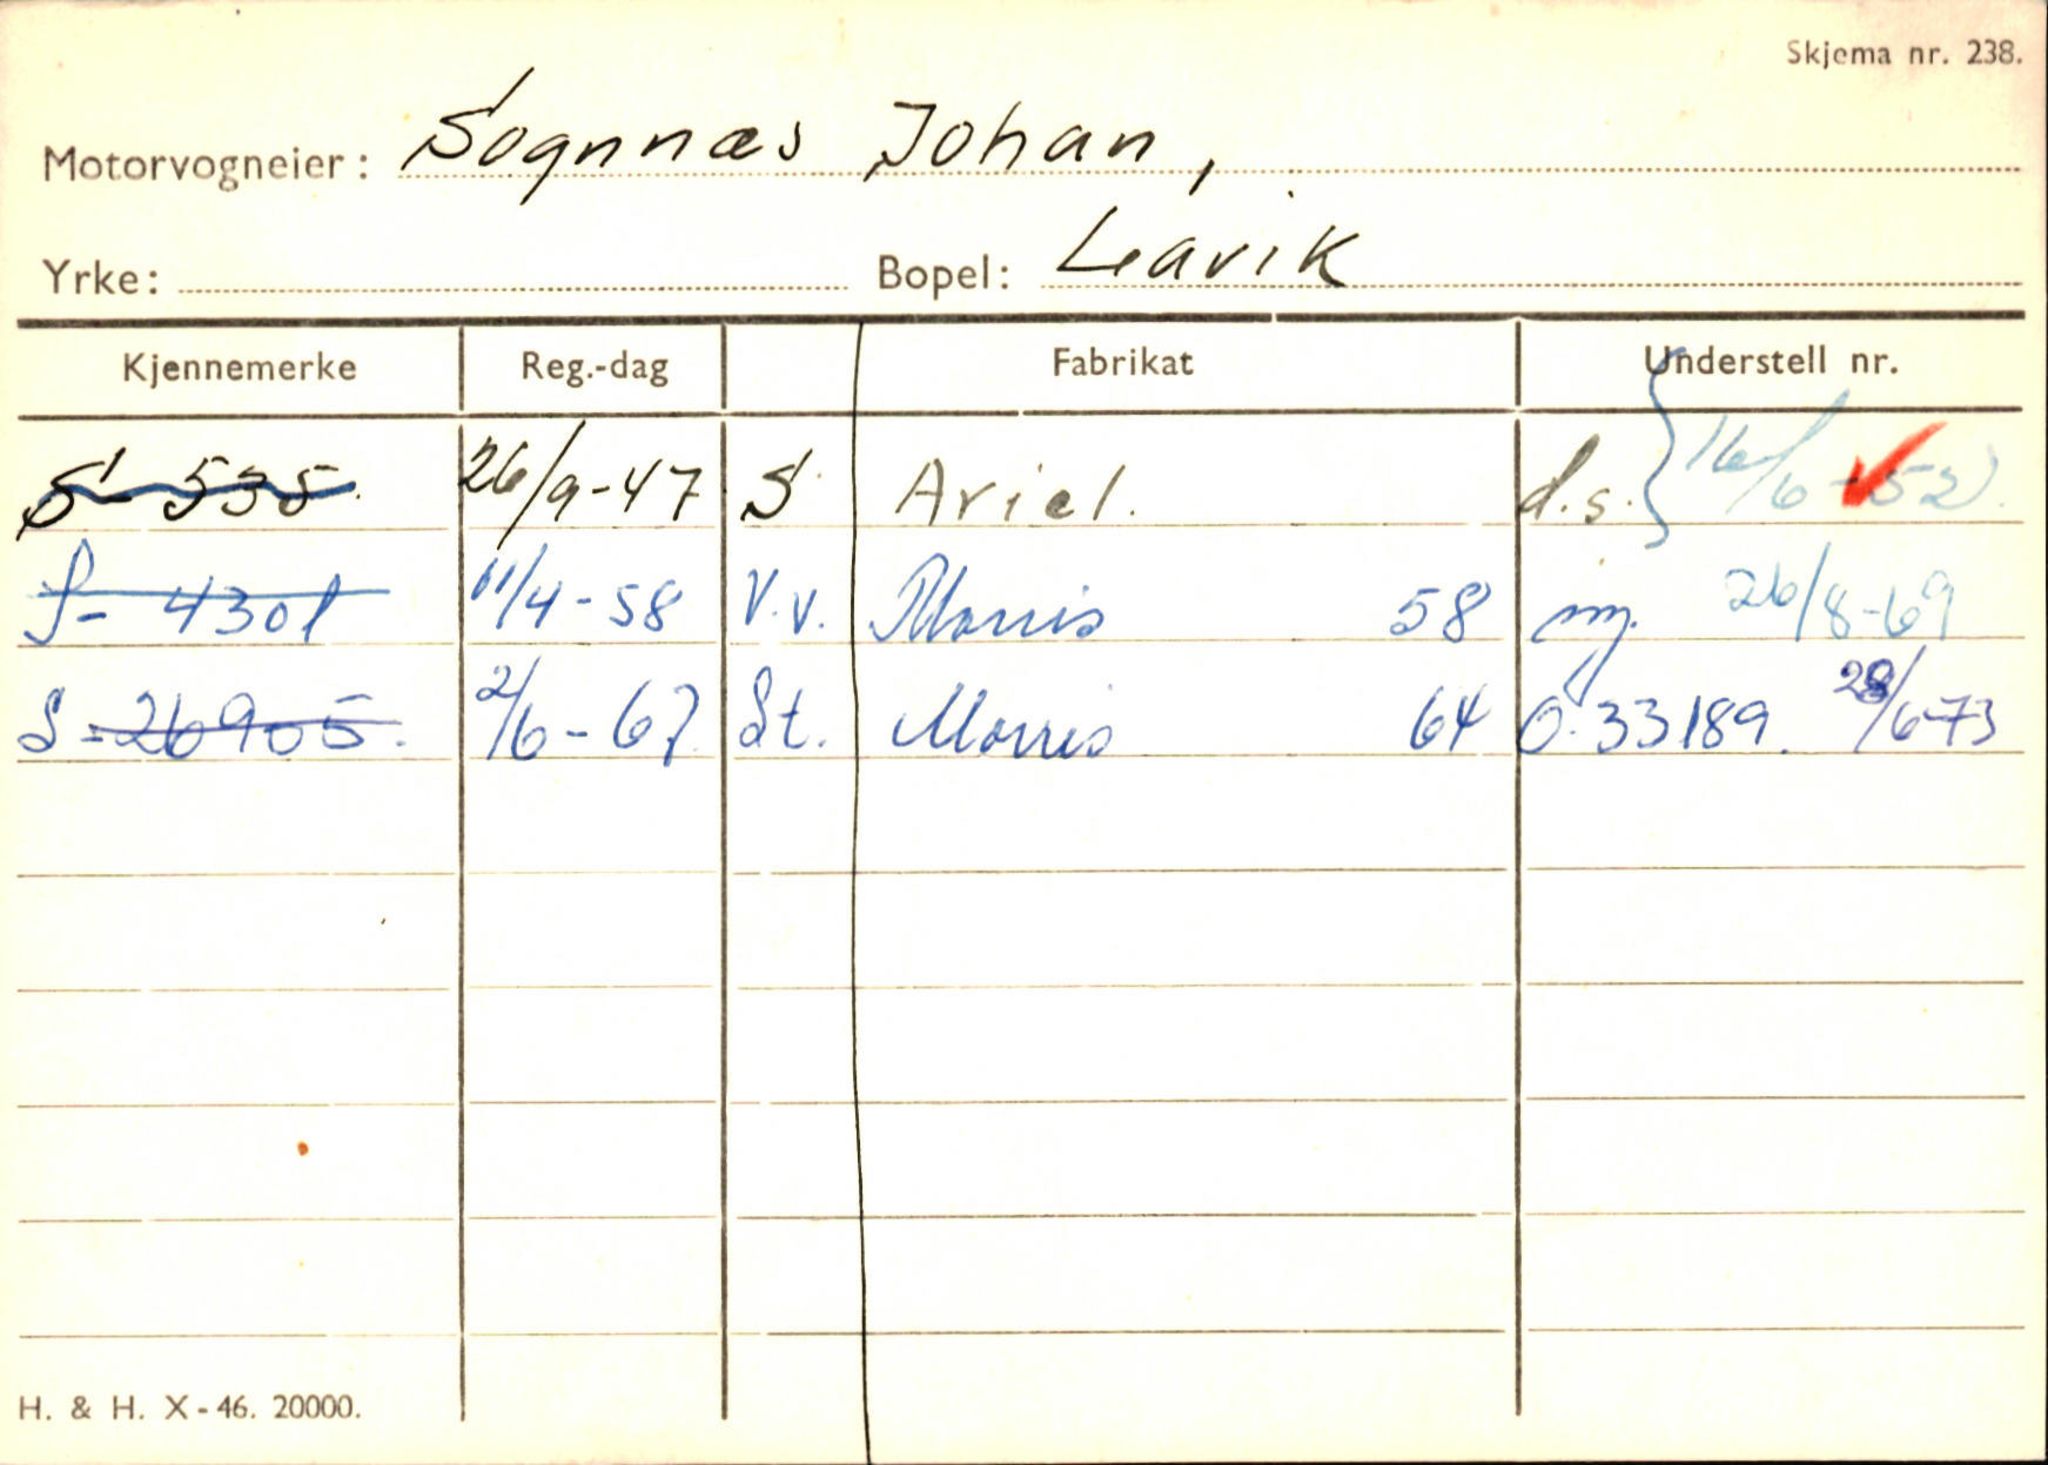 Skjema nr. 238.
Motorvogneier: Sognnæs Johan,
Yrke: Bopel: Leavik
Kjennemerke Reg.-dag Fabrikat Understell nr.
S- 535. 26/9-47 S Ariel. d.s. 16/6-52
S- 4301 11/4-58 V.v. Morris 58 m. 26/8-69
S-26905. 2/6-67 St. Morris 64 O.33189. 28/6-73
H. & H. X-46. 20000.